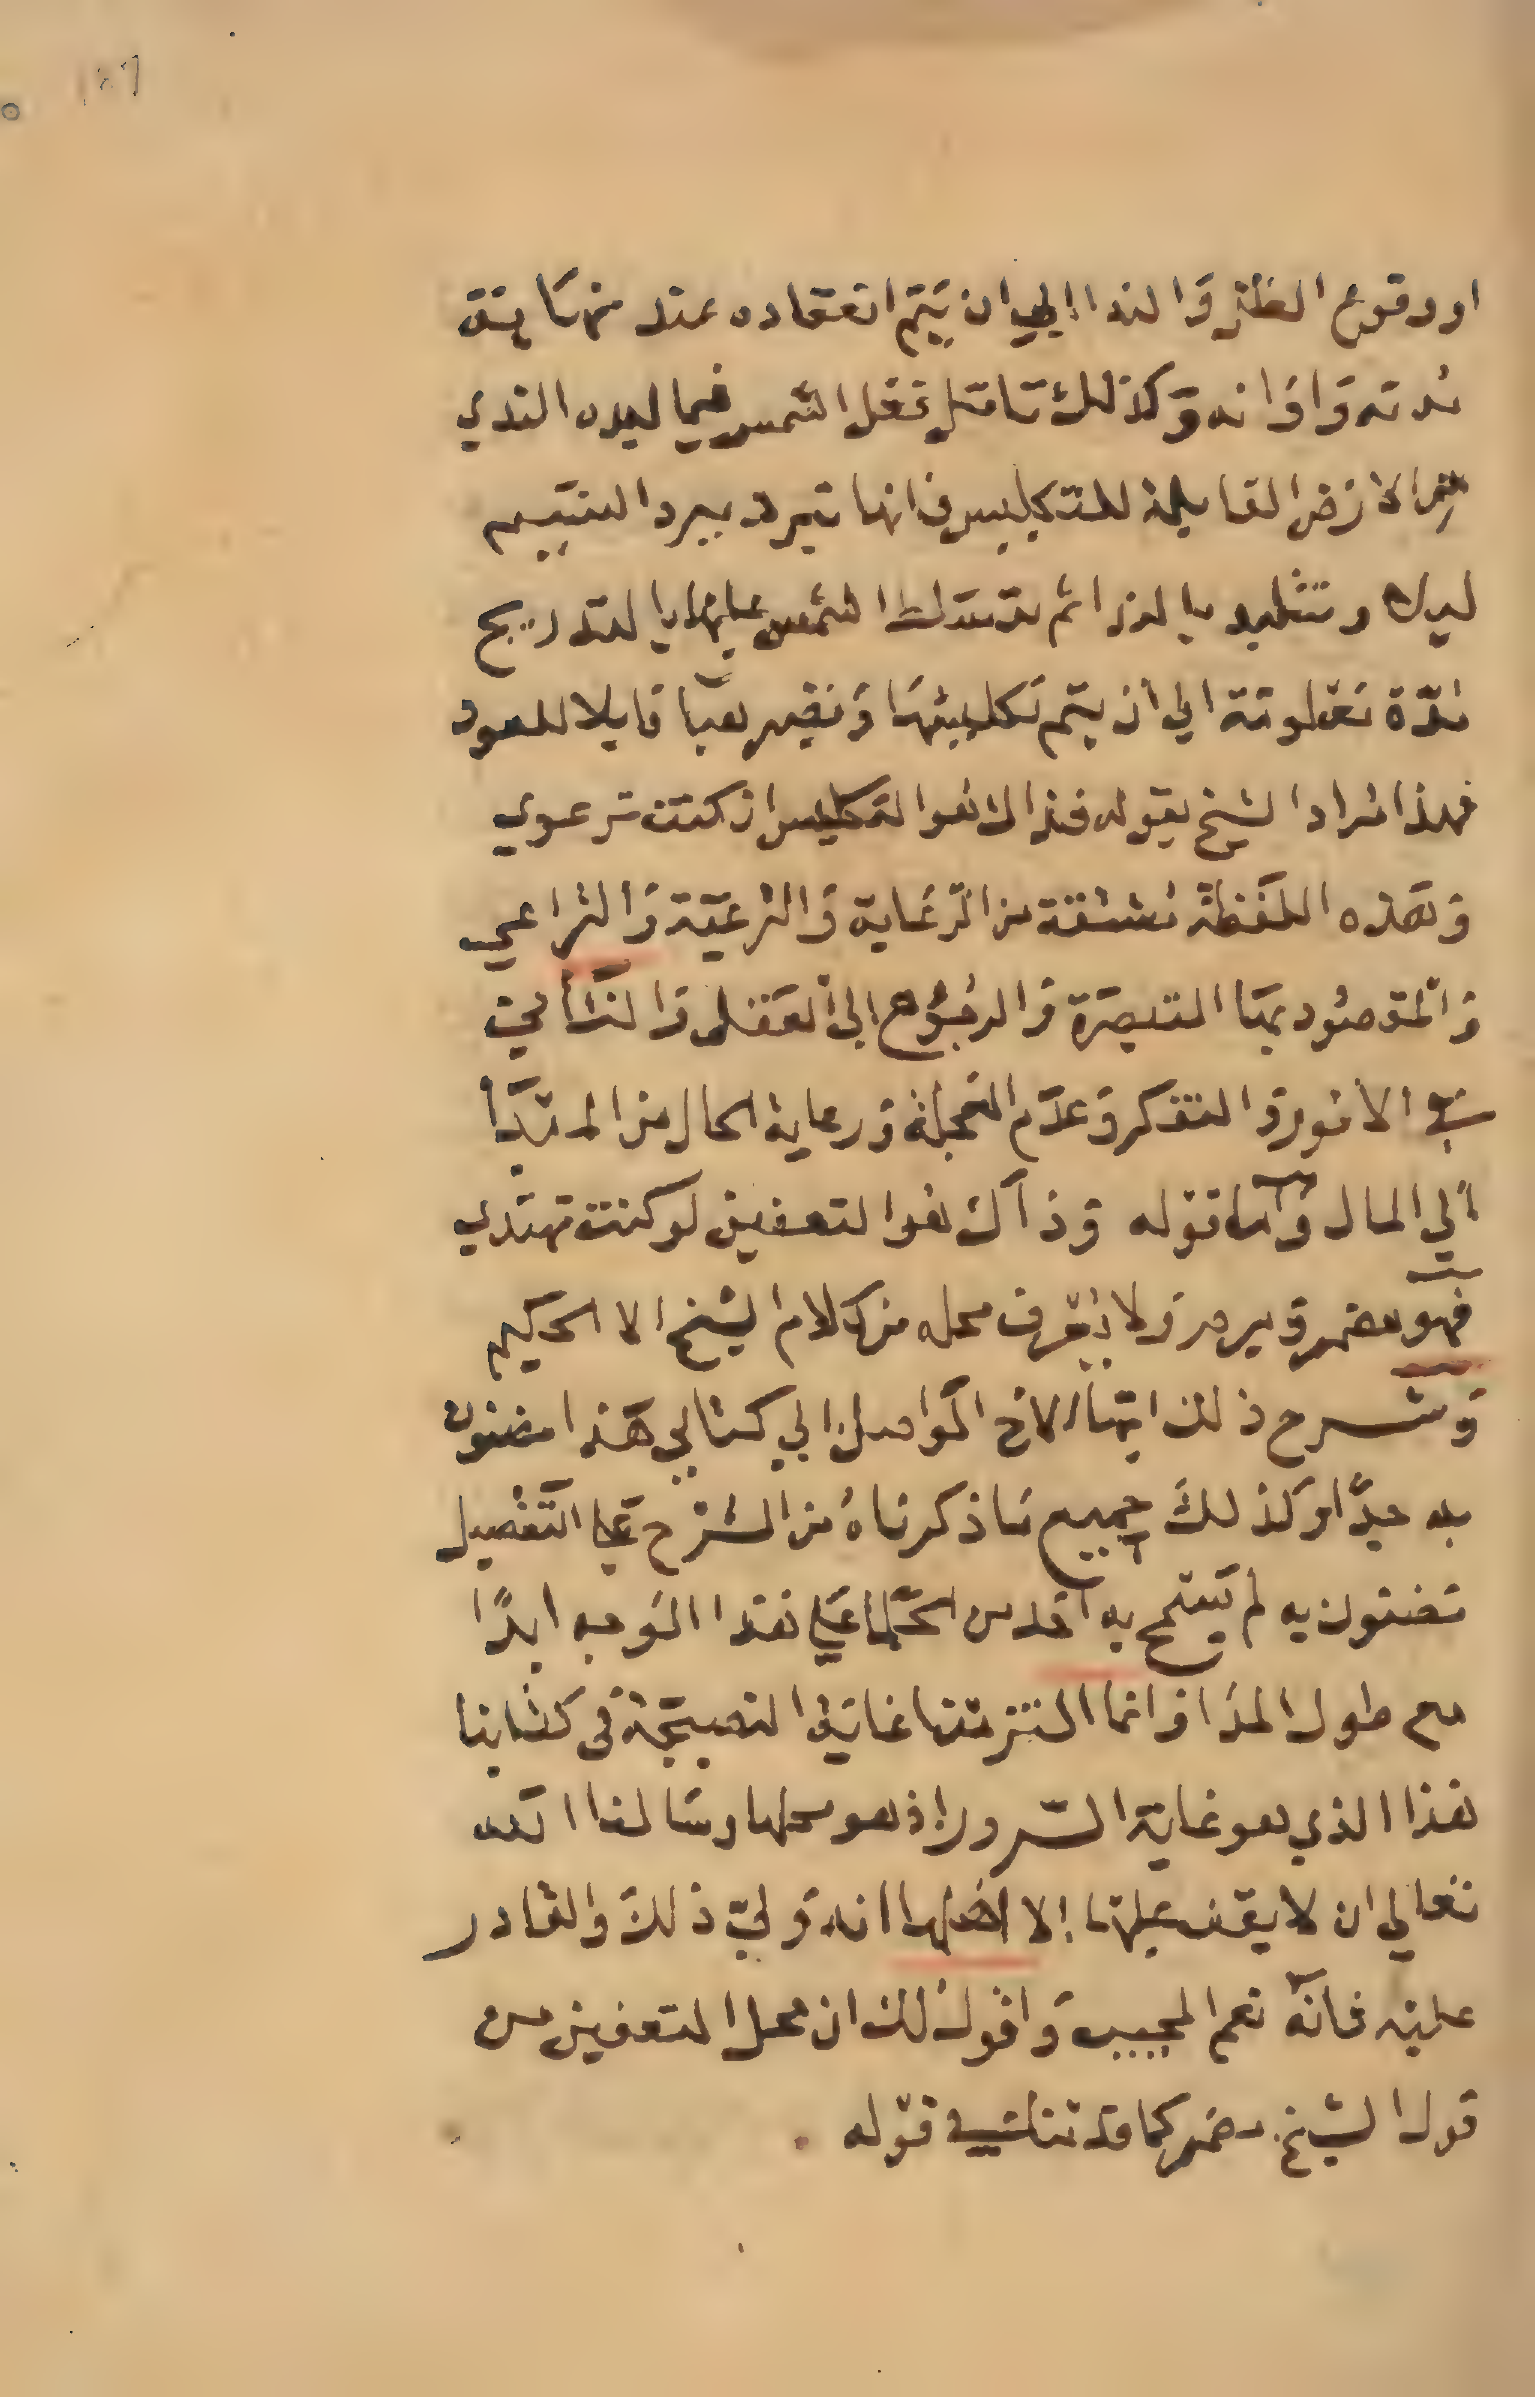 او وقوع الطل والندا الي ان يتم انعقاده عند منتها
مدته واوانه وكذلك تامل فعل الشمس فيما لبده الندي
من الارض القابلة للتكليس فانها تبرد ببرد النسيم
ليلا وتتلبد بالندا ثم تتسلط الشمس عليها بالتدريج
مدة معلومة الي ان يتم تكليسها وتصير هبا قابلا للعود
فهذا مراد الشيخ بقوله فذاك هو التكليس ان كنت ترعوي
وهذه اللفظة مشتقة من الرعاية والرعية والراعي
والمقصود بها التبصرة والرجوع الى العقل والتأني
في الامور والتفكر وعدم العجلة ورعاية الحال من المبتدأ
الي المال واما قوله وذاك هو التعفين لو كنت تهتدي
فهو مضمر ورمز ولا يعرف محله من كلام الشيخ الا الحكيم
وشرح ذلك ايها الاخ الواصل الي كتابي هذا مضنون
به جدا وكذلك جميع ما ذكرناه من الشرح علي التفصيل
مضنون به لم يسمح به احد من الحكما علي هذا الوجه ابدًا
مع طول المدا وانما التزمنا غاية النصيحة في كتابنا
هذا الذي هو غاية السرور اذ هو محلها وسالنا الله
تعالي ان لا يقف عليها إلا اهلها انه ولي ذلك والقادر
عليه فانه نعم المجيب واقول لك ان محل التعفين من
قول الشيخ مضمر كما قلنا في قوله